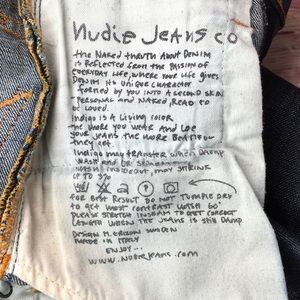 nudie Jeans co
the Naked thruth About DENIM
is Reflected from the Passion of
EVERYDAY Life, where your life gives
DENIM its unique character
formed by you into a second skin
Personal and Naked, Read to
be loved.
Indigo is a living color
the more you wear and use
your Jeans the more beautiful
they get.
Indigo may transfer when Damp
wash and Dry separately
wash insideout, may shrink
up to 3%
for best Result do not tumble dry
to get most contrast wash 60°
Please stretch inseam to get correct
length when the jeans is still Damp
Design M. Erixon Sweden
made in Italy
Enjoy...
www.nudiejeans.com